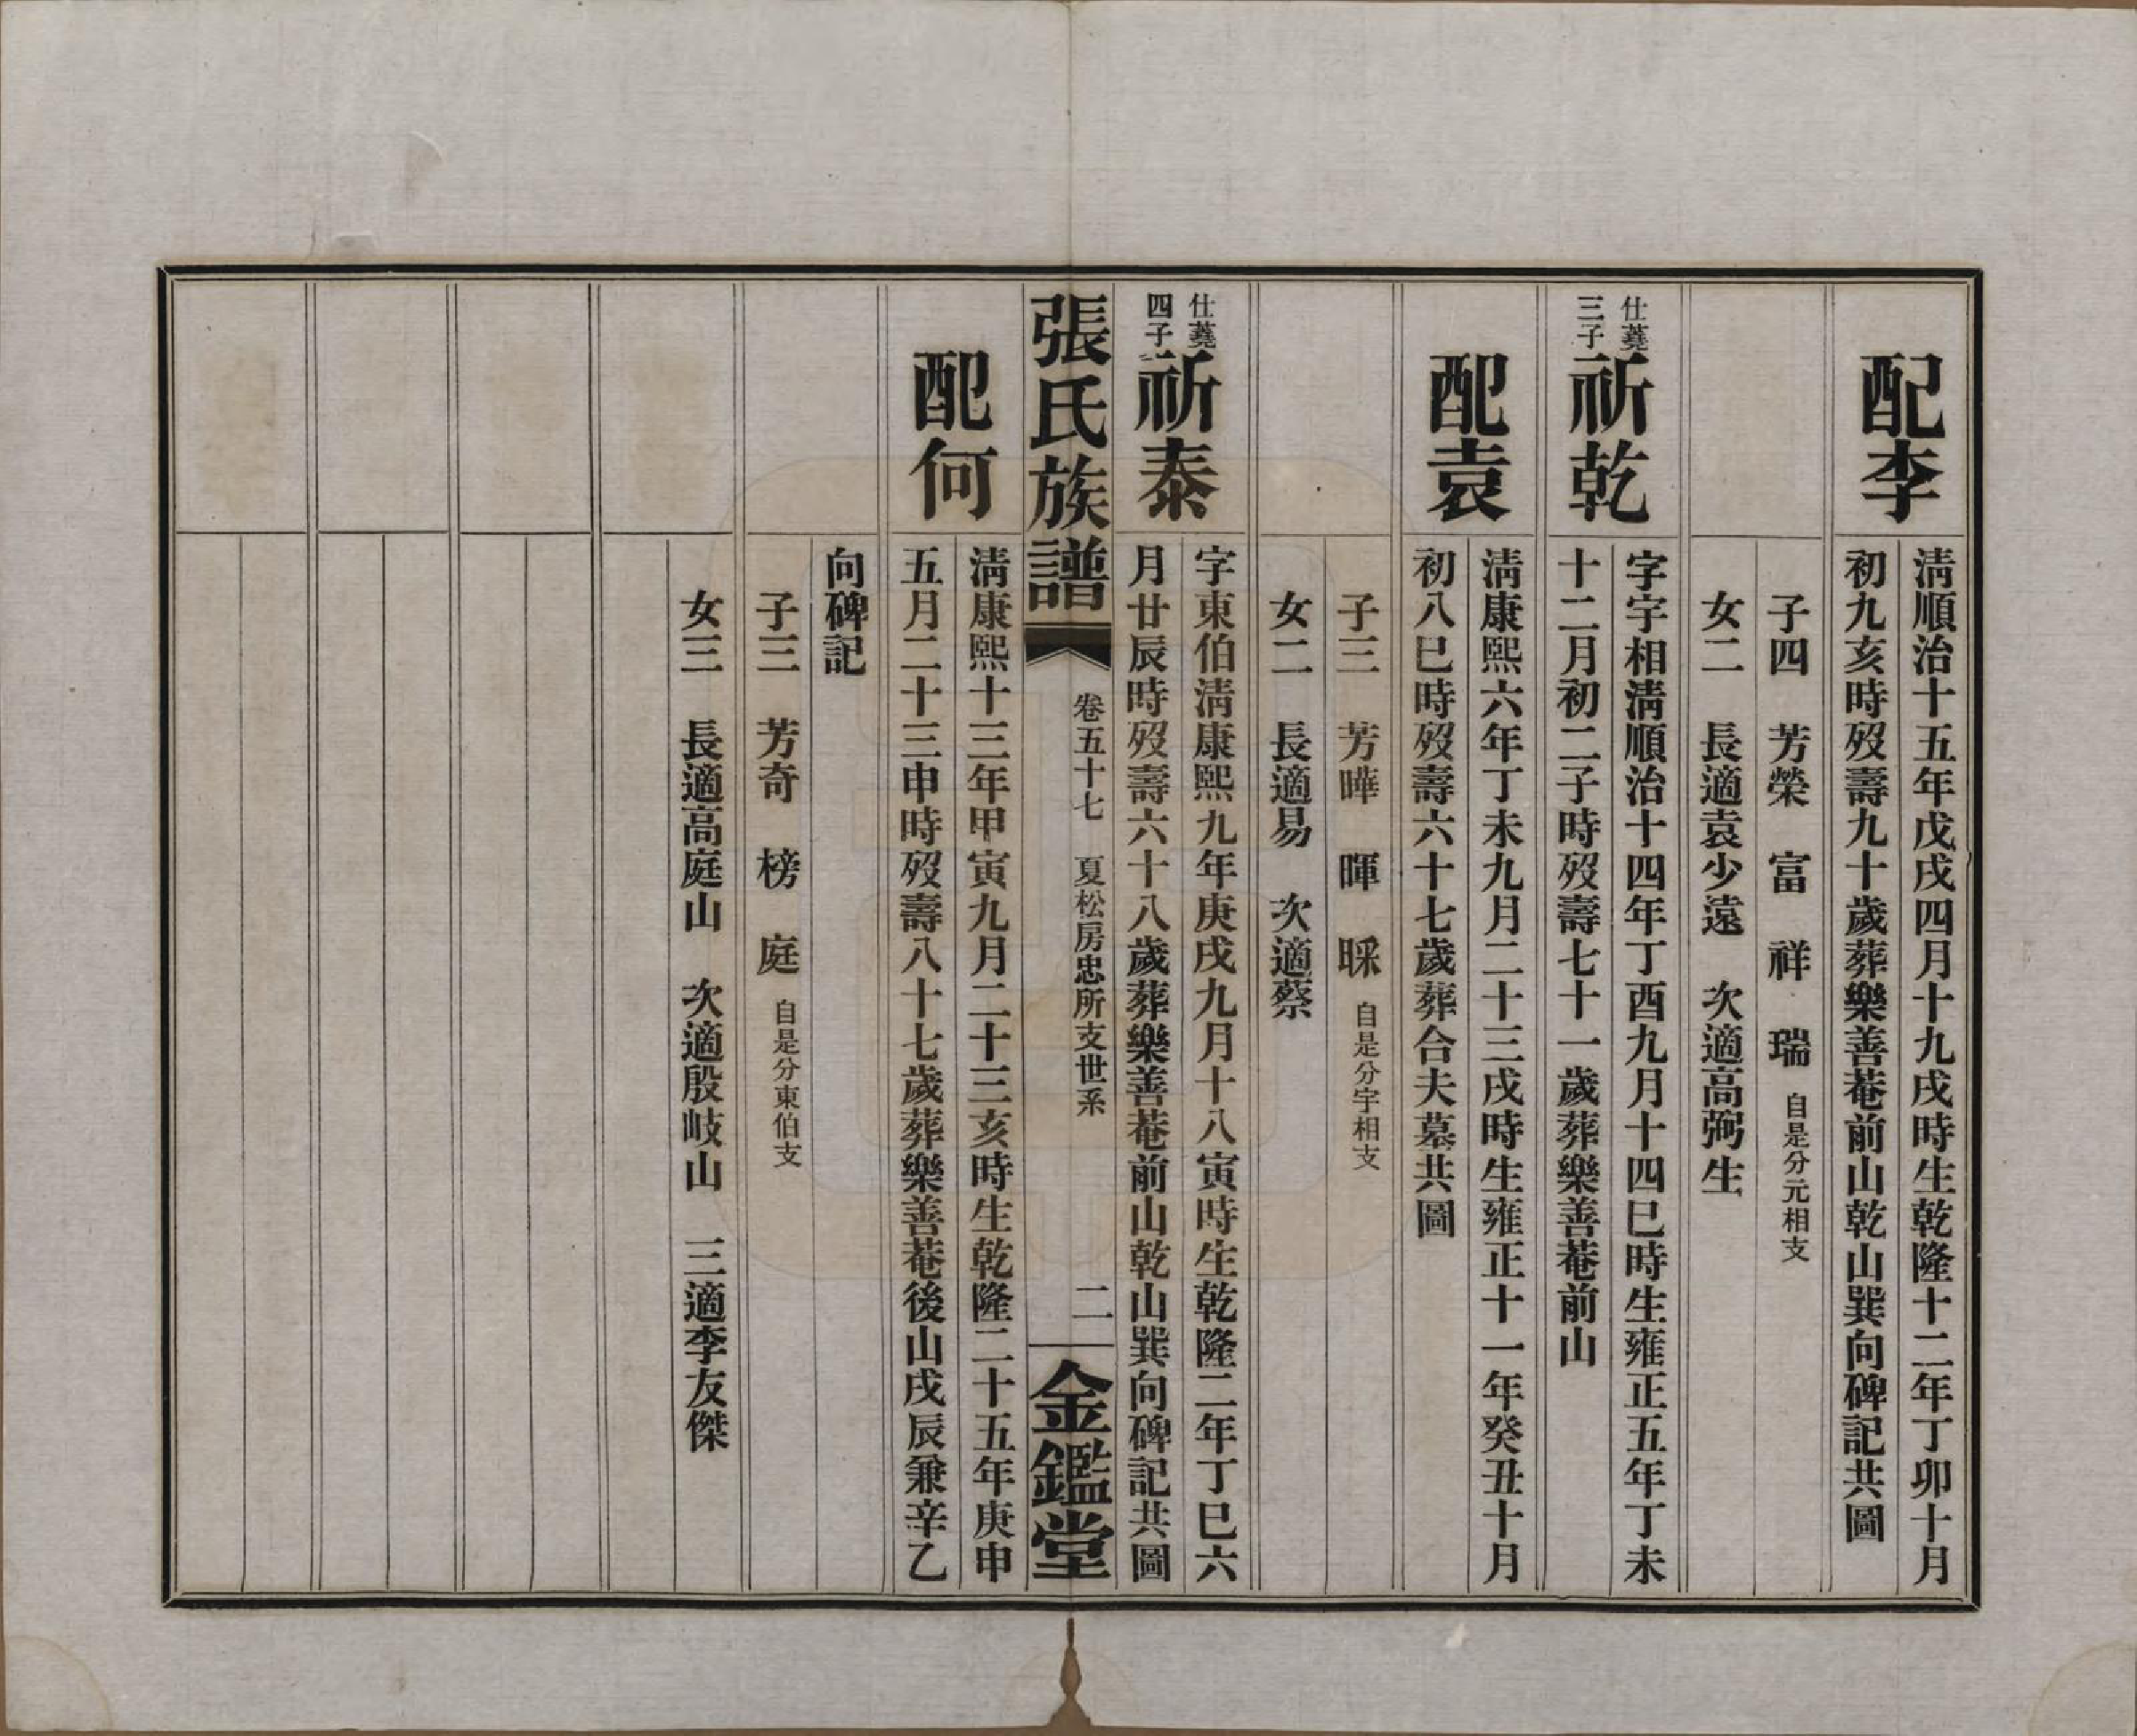 配李
清順治十五年戊戌四月十九戌時生乾隆十二年丁卯十月
初九亥時歿壽九十歲葬樂善菴前山乾山巽向碑記共圖
子四　芳榮　富　祥　瑞　自是分元相支
女二　長適袁少遠　次適高弼生
仕蕘
三子
祈乾
字宇相清順治十四年丁酉九月十四巳時生雍正五年丁未
十二月初二子時歿壽七十一歲葬樂善菴前山
配袁
清康熙六年丁未九月二十三戌時生雍正十一年癸丑十月
初八巳時歿壽六十七歲葬合夫墓共圖
子三　芳曄　暉　睬　自是分宇相支
女二　長適易　次適蔡
仕蕘
四子
祈泰
字東伯清康熙九年庚戌九月十八寅時生乾隆二年丁巳六
月廿辰時歿壽六十八歲葬樂善菴前山乾山巽向碑記共圖
張氏族譜
卷五十七　夏松房忠所支世系
二
金鑑堂
配何
清康熙十三年甲寅九月二十三亥時生乾隆二十五年庚申
五月二十三申時歿壽八十七歲葬樂善菴後山戌辰兼辛乙
向碑記
子三　芳奇　榜　庭　自是分東伯支
女三　長適高庭山　次適殷岐山　三適李友傑